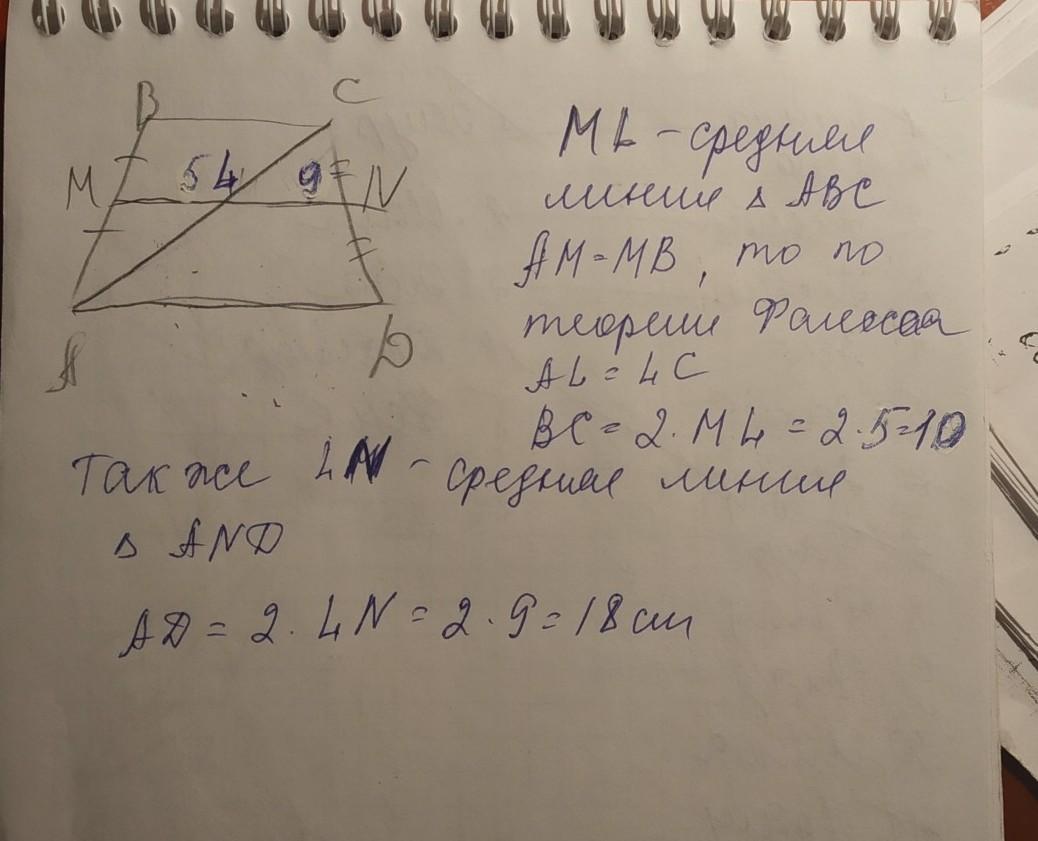 B C
M 5 L 9 N
A D
ML - средняя
линия △ ABC
AM = MB, то по
теореме Фалесса
AL = LC
BC = 2 · ML = 2 · 5 = 10
Также LN - средняя линия
△ AND
AD = 2 · LN = 2 · 9 = 18 см